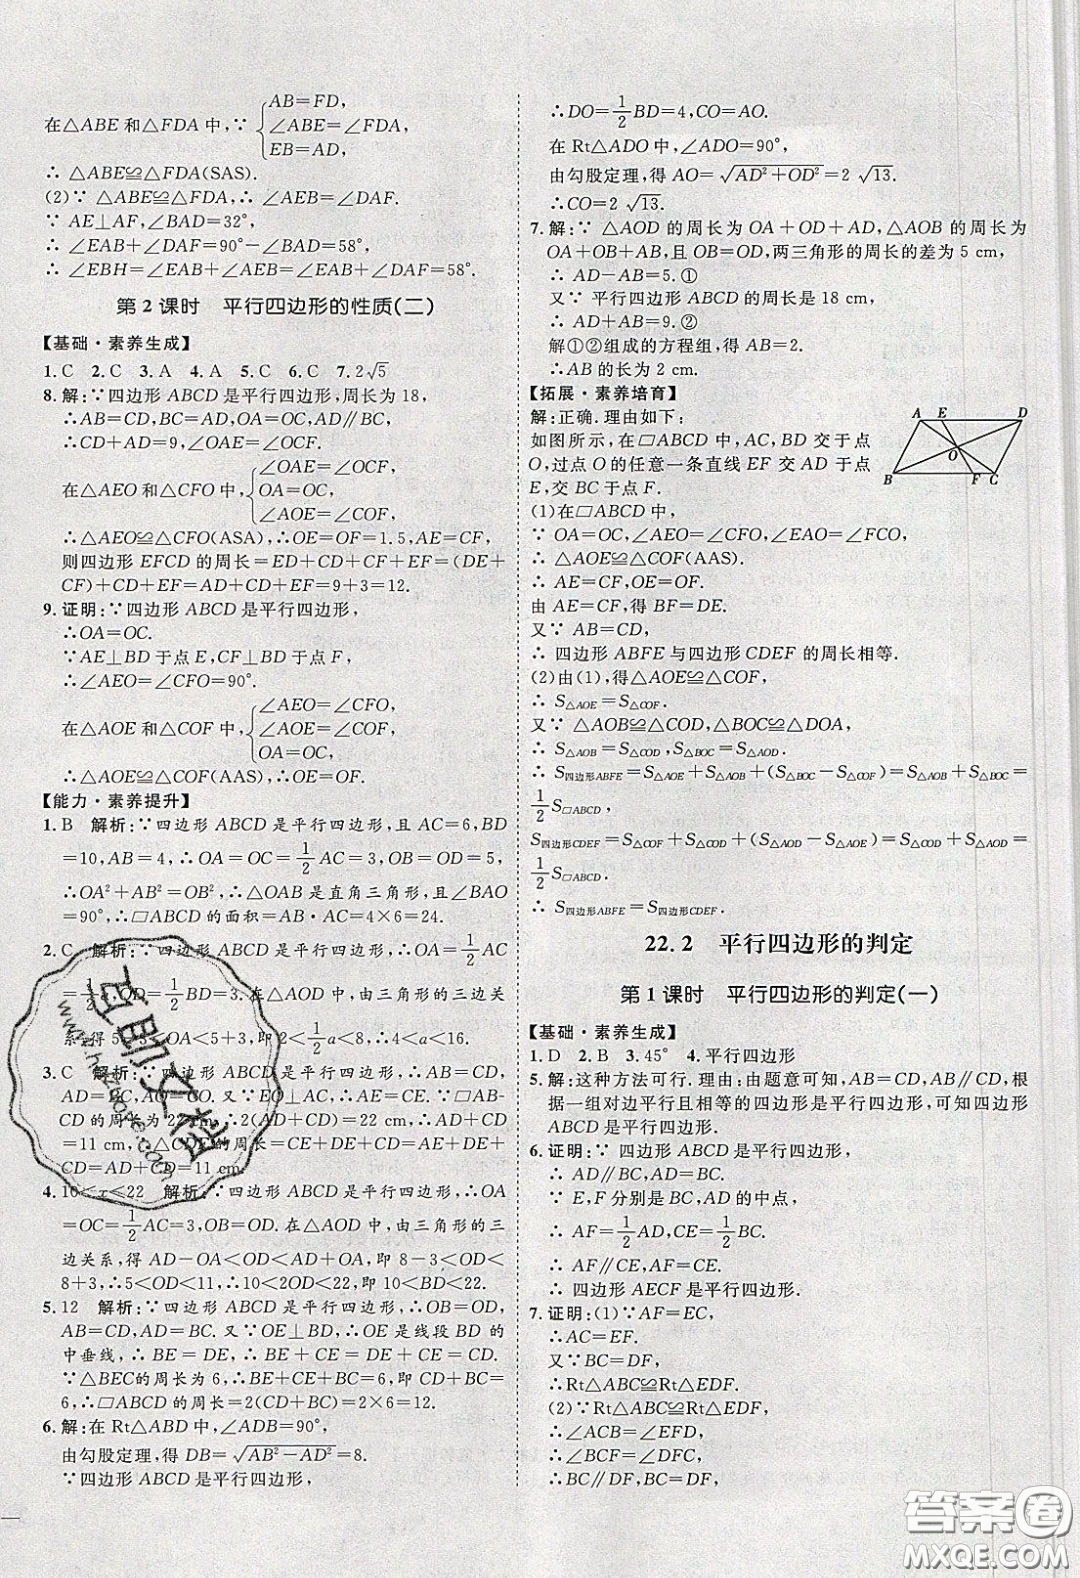 AB=FD,
在△ABE 和△FDA 中,∵ ∠ABE=∠FDA,
EB=AD,
∴ △ABE≌△FDA(SAS).
(2)∵ △ABE≌△FDA,∴ ∠AEB=∠DAF.
∵ AE⊥AF,∠BAD=32°,
∴ ∠EAB+∠DAF=90°-∠BAD=58°,
∴ ∠EBH=∠EAB+∠AEB=∠EAB+∠DAF=58°.
第 2 课时 平行四边形的性质(二)
【基础·素养生成】
1. C 2. C 3. A 4. A 5. C 6. C 7. 2√5
8. 解:∵四边形 ABCD 是平行四边形,周长为 18,
∴AB=CD,BC=AD,OA=OC,AD∥BC,
∴CD+AD=9,∠OAE=∠OCF.
∠OAE=∠OCF,
在△AEO 和△CFO 中, OA=OC,
∠AOE=∠COF,
∴△AEO≌△CFO(ASA),∴OE=OF=1.5,AE=CF,
则四边形 EFCD 的周长=ED+CD+CF+EF=(DE+
CF)+CD+EF=AD+CD+EF=9+3=12.
9. 证明:∵四边形 ABCD 是平行四边形,
∴OA=OC.
∵AE⊥BD 于点 E,CF⊥BD 于点 F,
∴∠AEO=∠CFO=90°.
∠AEO=∠CFO,
在△AOE 和△COF 中, ∠AOE=∠COF,
OA=OC,
∴△AOE≌△COF(AAS),∴OE=OF.
【能力·素养提升】
1. B 解析:∵四边形 ABCD 是平行四边形,且 AC=6,BD
=10,AB=4,∴OA=OC=1/2AC=3,OB=OD=5,
∴OA²+AB²=OB²,∴△OAB 是直角三角形,∠BAO
=90°,∴□ABCD 的面积=AB·AC=4×6=24.
2. C 解析:∵四边形 ABCD 是平行四边形,∴OA=1/2AC
=1/2x,OD=1/2BD=8.在△OAD 中,由三角形的三边关
系,得 5-3<OD<5+3,即 2<1/2a<8,∴4<a<16.
3. C 解析:∵四边形 ABCD 是平行四边形,∴AB=CD,
BC=AD,OA=OC.又∵EO⊥AC,∴AE=CE.∵□AB-
CD 的周长为 22 cm,∴2(AD+CD)=22 cm,∴AD+CD
=11 cm,∴△CDE 的周长=CE+DE+CD=AE+DE+
CD=AD+CD=11 cm.
4. 10<x<22 解析:∵四边形 ABCD 是平行四边形,∴OA
=OC=1/2AC=3,OB=OD.在△AOD 中,由三角形的三
边关系,得 AD-OA<OD<AD+OA,即 8-3<OD<
8+3,∴5<OD<11,∴10<2OD<22,即 10<BD<22.
5. 12 解析:∵四边形 ABCD 是平行四边形,∴OB=OD,
AB=CD,AD=BC.又∵OE⊥BD,∴OE 是线段 BD 的
中垂线,∴BE=DE,∴BE+CE=DE+CE=CD.
∵△BEC的周长为 6,∴BE+CE+BC=6,∴CD+BC=
6,∴□ABCD 的周长=2(CD+BC)=2×6=12.
6. 解:在 Rt△ABD 中,∠ADB=90°,
由勾股定理,得 DB=√(AB²-AD²)=8.
∵四边形 ABCD 是平行四边形,
∴DO=1/2BD=4,CO=AO.
在 Rt△ADO 中,∠ADO=90°,
由勾股定理,得 AO=√(AD²+OD²)=2√13.
∴CO=2√13.
7. 解:∵ △AOD 的周长为 OA+OD+AD,△AOB 的周长为
OA+OB+AB,且 OB=OD,两三角形的周长的差为 5 cm,
∴ AD-AB=5.①
又∵ 平行四边形 ABCD 的周长是 18 cm,
∴ AD+AB=9.②
解①②组成的方程组,得 AB=2.
∴AB 的长为 2 cm.
【拓展·素养培育】
解:正确.理由如下:
如图所示,在□ABCD 中,AC,BD 交于点
O,过点 O 的任意一条直线 EF 交 AD 于点
E,交 BC 于点 F.
A E D
O
B F C
(1)在□ABCD 中,
∵ OA=OC,∠AEO=∠CFO,∠EAO=∠FCO,
∴ △AOE≌△COF(AAS).
∴ AE=CF,OE=OF.
由 AE=CF,得 BF=DE.
又∵ AB=CD,
∴ 四边形 ABFE 与四边形 CDEF 的周长相等.
(2)由(1),得△AOE≌△COF,
∴ S△AOE=S△COF.
又∵ △AOB≌△COD,△BOC≌△DOA,
∴ S△AOB=S△COD,S△BOC=S△AOD.
∴ S四边形ABFE=S△AOE+S△AOB+(S△BOC-S△COF)=S△AOB+S△BOC=
1/2S□ABCD,
S四边形CDEF=S△COF+S△COD+(S△AOD-S△AOE)=S△COD+S△AOD=
1/2S□ABCD.
∴ S四边形ABFE=S四边形CDEF.
22.2 平行四边形的判定
第 1 课时 平行四边形的判定(一)
【基础·素养生成】
1. D 2. B 3. 45° 4. 平行四边形
5. 解:这种方法可行.理由:由题意可知,AB=CD,AB∥CD,根
据一组对边平行且相等的四边形是平行四边形,可知四边形
ABCD 是平行四边形.
6. 证明:∵ 四边形 ABCD 是平行四边形,
∴ AD∥BC,AD=BC.
∵ E,F 分别是 BC,AD 的中点,
∴ AF=1/2AD,CE=1/2BC.
∴ AF∥CE,AF=CE.
∴ 四边形 AECF 是平行四边形.
7. 证明:(1)∵AF=EC,
∴AC=EF.
又∵BC=DF,
∴Rt△ABC≌Rt△EDF.
(2)∵Rt△ABC≌Rt△EDF,
∴∠ACB=∠EFD.
∴∠BCF=∠DFC.
∴BC∥DF.又∵BC=DF,
互助文档
www.hzuome.com
答案圈
MXQE.COM